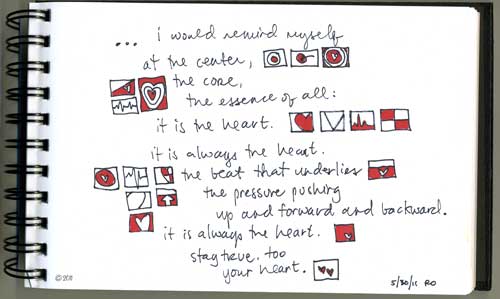 ... i would remind myself
at the center,
the core,
the essence of all:
it is the heart.
it is always the heart.
the beat that underlies
the pressure pushing
up and forward and backward.
it is always the heart.
stay true. too
your heart.
©2011
5/30/11 RO